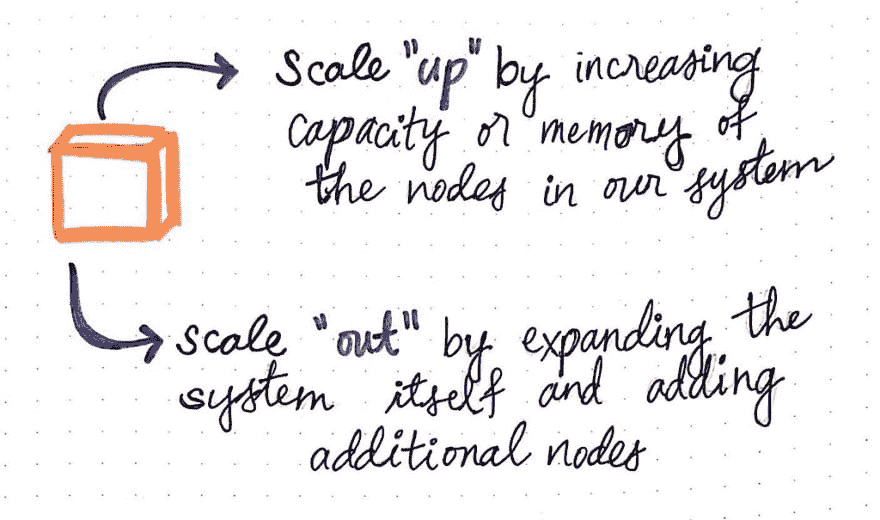 Scale "up" by increasing
capacity or memory of
the nodes in our system
scale "out" by expanding the
system itself and adding
additional nodes